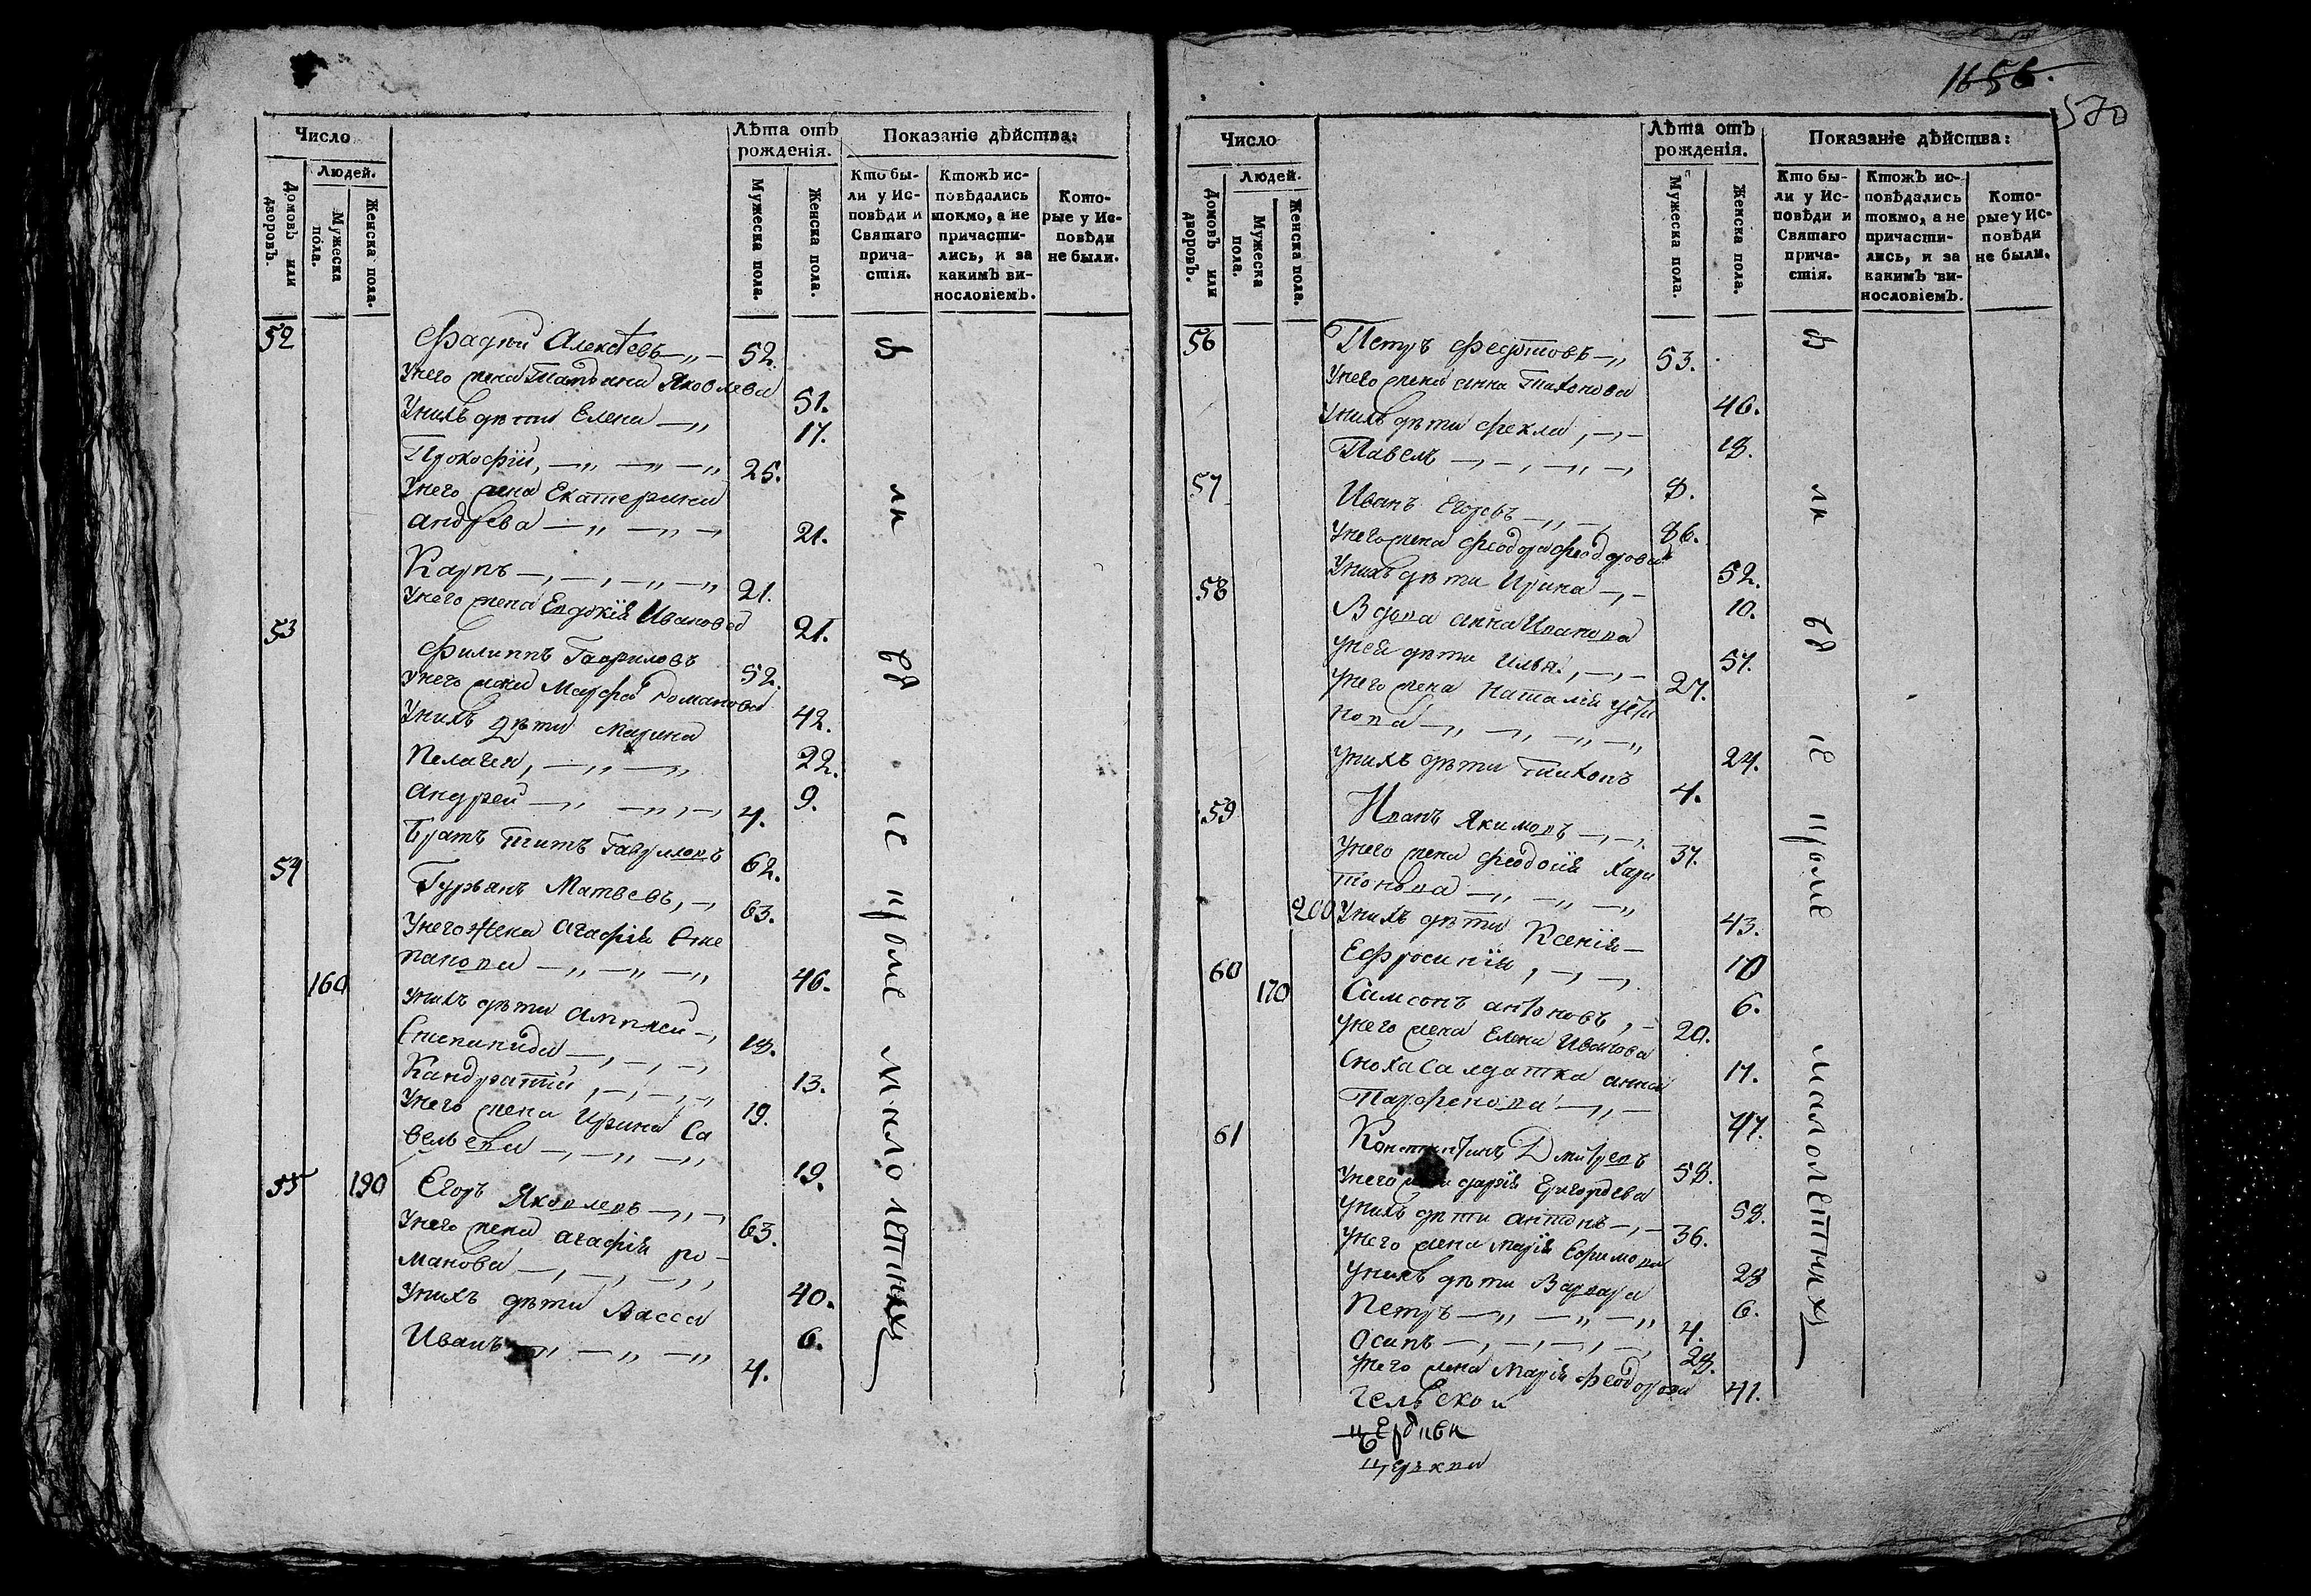 Число
Лѣта отъ рожденія.
Показаніе дѣйства:
Людей.
Домовъ или дворовъ.
Мужеска пола.
Женска пола.
Мужеска пола.
Женска пола.
Кто бы-
ли у Ис-
повѣди и
Святаго
прича-
стія.
Ктожъ ис-
повѣдались
токмо, а не
причасти-
лись, и за
какимъ ви-
нословіемъ.
Кото-
рые у Ис-
повѣди
не были.
52 Фадѣй Алексѣевъ 52.
Унего жена Татьяна Яковлева 51.
Унихъ дѣти Елена 17.
Прокофій, 25.
Унего жена Екатерина
андрѣева 21.
Карпъ 21.
Унего жена Евдокія Иванова 21.
53 Филиппъ Гавриловъ 52.
Унего жена Марфа Романова 42.
Унихъ дѣти Марина 22.
Пелагея, 9.
андрей 4.
Братъ Титъ Гавриловъ 62.
54 Гурьянъ Матвеевъ, 63.
Унего жена агафія Сте
панова 46.
160 Унихъ дѣти 18.
13.
Кандратій, 19.
Унего жена Ирина Са
вельева 19.
55 190 Егоръ Яковлевъ 63.
Унего жена агафія ро-
манова 40.
Унихъ дѣти Васса 6.
Иванъ 4.
малолетныхъ
1656.
570
Число
Лѣта отъ рожденія.
Показаніе дѣйства:
Людей.
Домовъ или дворовъ.
Мужеска пола.
Женска пола.
Мужеска пола.
Женска пола.
Кто бы-
ли у Ис-
повѣди и
Святаго
прича-
стія.
Ктожъ ис-
повѣдались
токмо, а не
причасти-
лись, и за
какимъ ви-
нословіемъ.
Кото-
рые у Ис-
повѣди
не были.
56 Петръ Федотовъ 53.
Унего жена анна Тихонова 46.
Унихъ дѣти Фекла, 18.
Павелъ 8.
57 Иванъ Егоровъ 86.
Унего жена Феодора Феодорова 52.
Унихъ дѣти Ирина 10.
58 Вдова анна Иванова 57.
Унея дѣти Илья, 27.
Унего жена Наталія Усти
нова 24.
Унихъ дѣти Тихонъ 4.
59 Иванъ Якимовъ 37.
Унего жена Феодосія Хари
тонова 43.
200 Унихъ дѣти Ксенія 10
Ефросинія, 6.
60 170 Самсонъ антоновъ, 20.
Унего жена Елена Иванова 17.
Сноха Салдатка анна
Парфенова 47.
61 Константинъ Дмитревъ 58.
Унего жена дарія Григорьева 58.
Унихъ дѣти антонъ 36.
Унего жена Марія Ефимова 28
Унихъ дѣти Варвара 6.
Петръ 4.
Осипъ 28.
Унего жена Марія Феодорова 41.
малолѣтныхъ
церкви